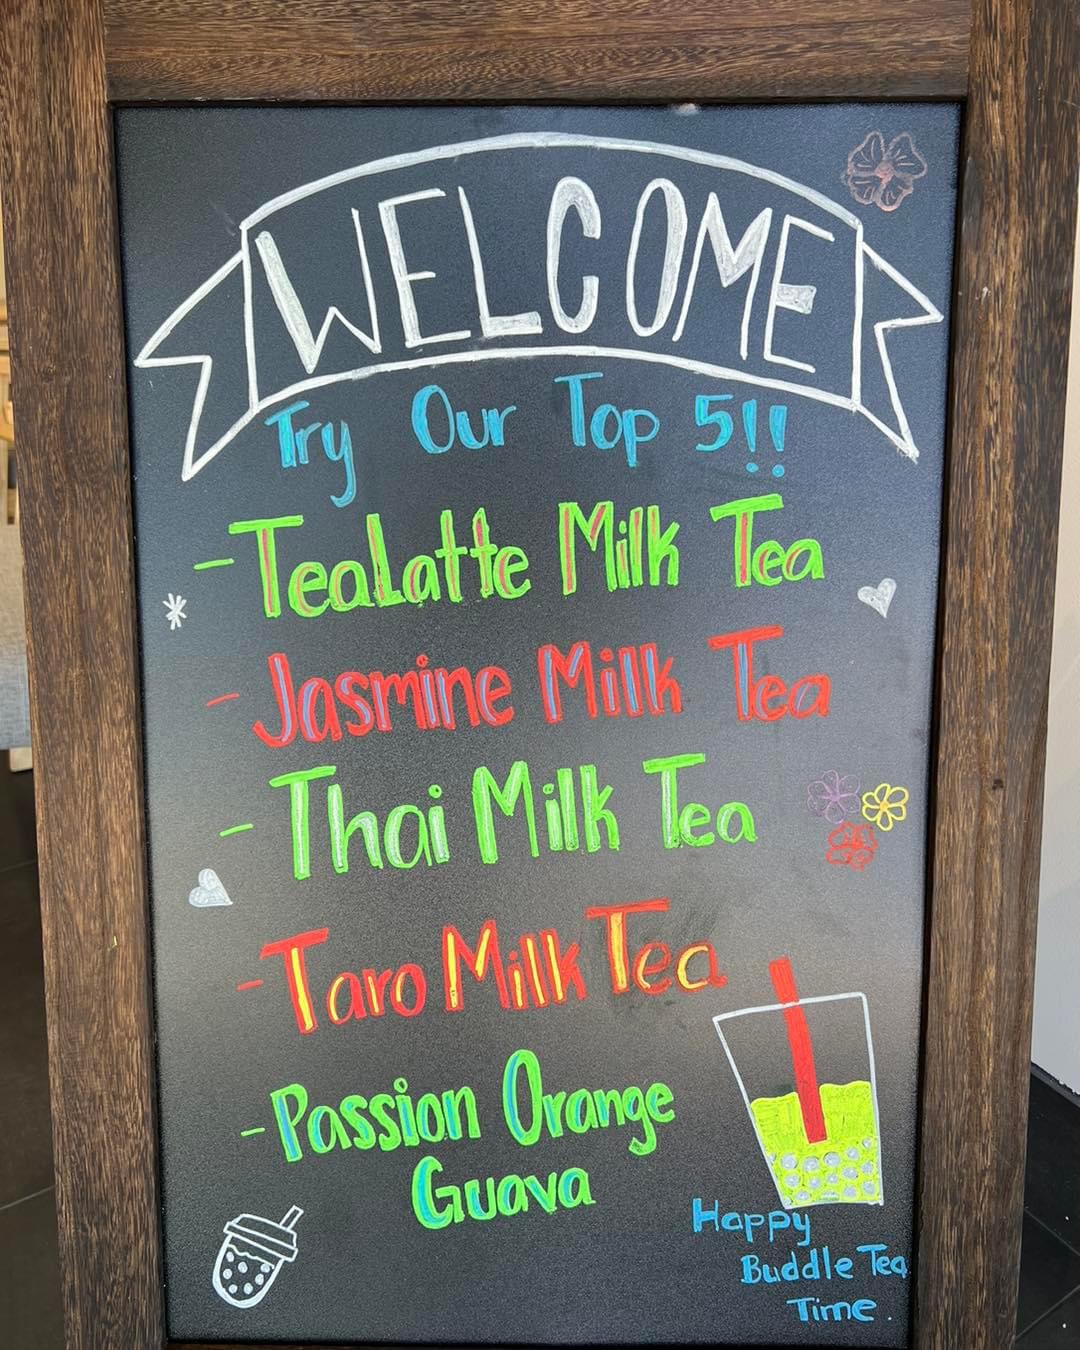 WELCOME
Try Our Top 5!!
- TeaLatte Milk Tea
- Jasmine Milk Tea
- Thai Milk Tea
- Taro Milk Tea
- Passion Orange
Guava
Happy
Buddle Tea
Time.